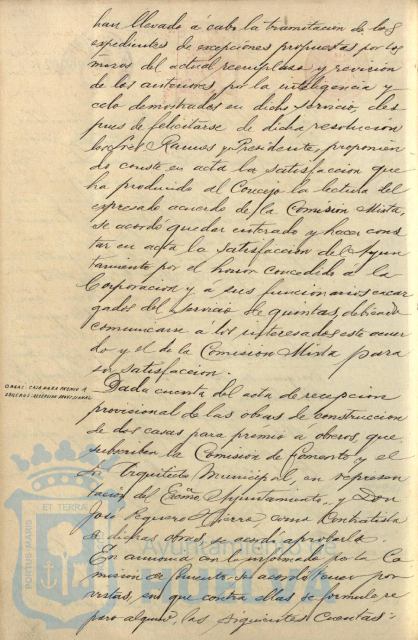 han llevado á cabo la tramitación de los
expedientes de excepciones propuestas por los
mozos del actual reemplazo y revisión
de los anteriores, por la inteligencia y
celo demostrados en dicho servicio, des
pues de felicitarse de dicha resolución
los Sres Ramos y Presidente, proponien
do conste en acta la satisfacción que
ha producido al Concejo la lectura del
expresado acuerdo de la Comisión Mixta,
se acordó quedar enterado y hacer cons
tar en acta la satisfacción del Ayun
tamiento por el honor concedido a la
Corporación y a sus funcionarios encar
gados del servicio de quintas, debiendo
comunicarse a los interesados este acuer
do y el de la Comisión Mixta para
su satisfacción.
OBRAS: CASA PARA PREMIO A
OBREROS: RECEPCIÓN PROVISIONAL
Dada cuenta del acta de recepción
provisional de las obras de construcción
de dos casas para premio a obreros, que
suscriben la Comisión de fomento y el
Sr. Arquitecto Municipal, en represen
tación del Excmo. Ayuntamiento, y Don
José, como Contratista
de dichas obras, se acordó aprobarla.
En armonía con lo informado por la Co
misión de fomento, se acordó por
vistas, en que contra ellas se formule re
paro alguno, las siguientes cuentas:
PORTUS MARIS
ET TERRA
Ayuntamiento de